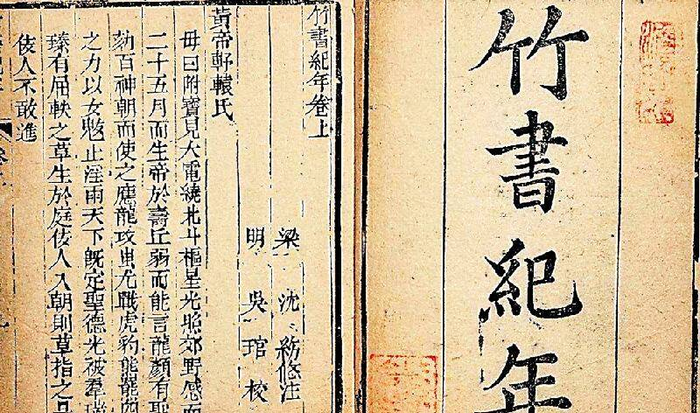 竹書紀年
竹書紀年卷上
梁 沈 約附注
明 吳 琯 校
黃帝軒轅氏
母曰附寶見大電繞北斗樞星光照郊野感而
二十五月而生帝於壽丘弱而能言龍顏有聖
劾百神朝而使之應龍攻蚩尤戰虎豹熊羆四
之力以女魃止淫雨天下既定聖德光被羣瑞
臻有屈軼之草生於庭佞人入朝則草指之是
佞人不敢進